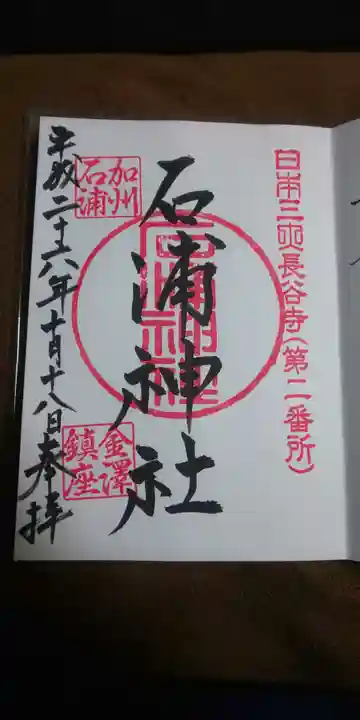 日本三大長谷寺(第二番所)
石浦神社
加州
石浦
金澤
鎮座
平成二十六年十月十八日奉拝